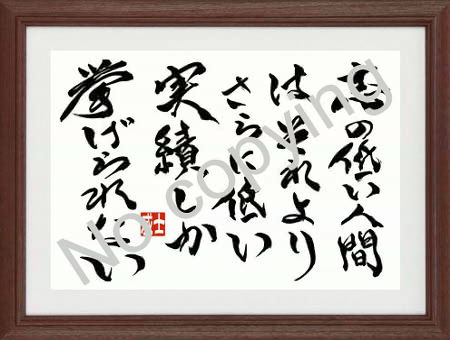 志の低い人間
はそれより
さらに低い
実績しか
挙げられない
No copying